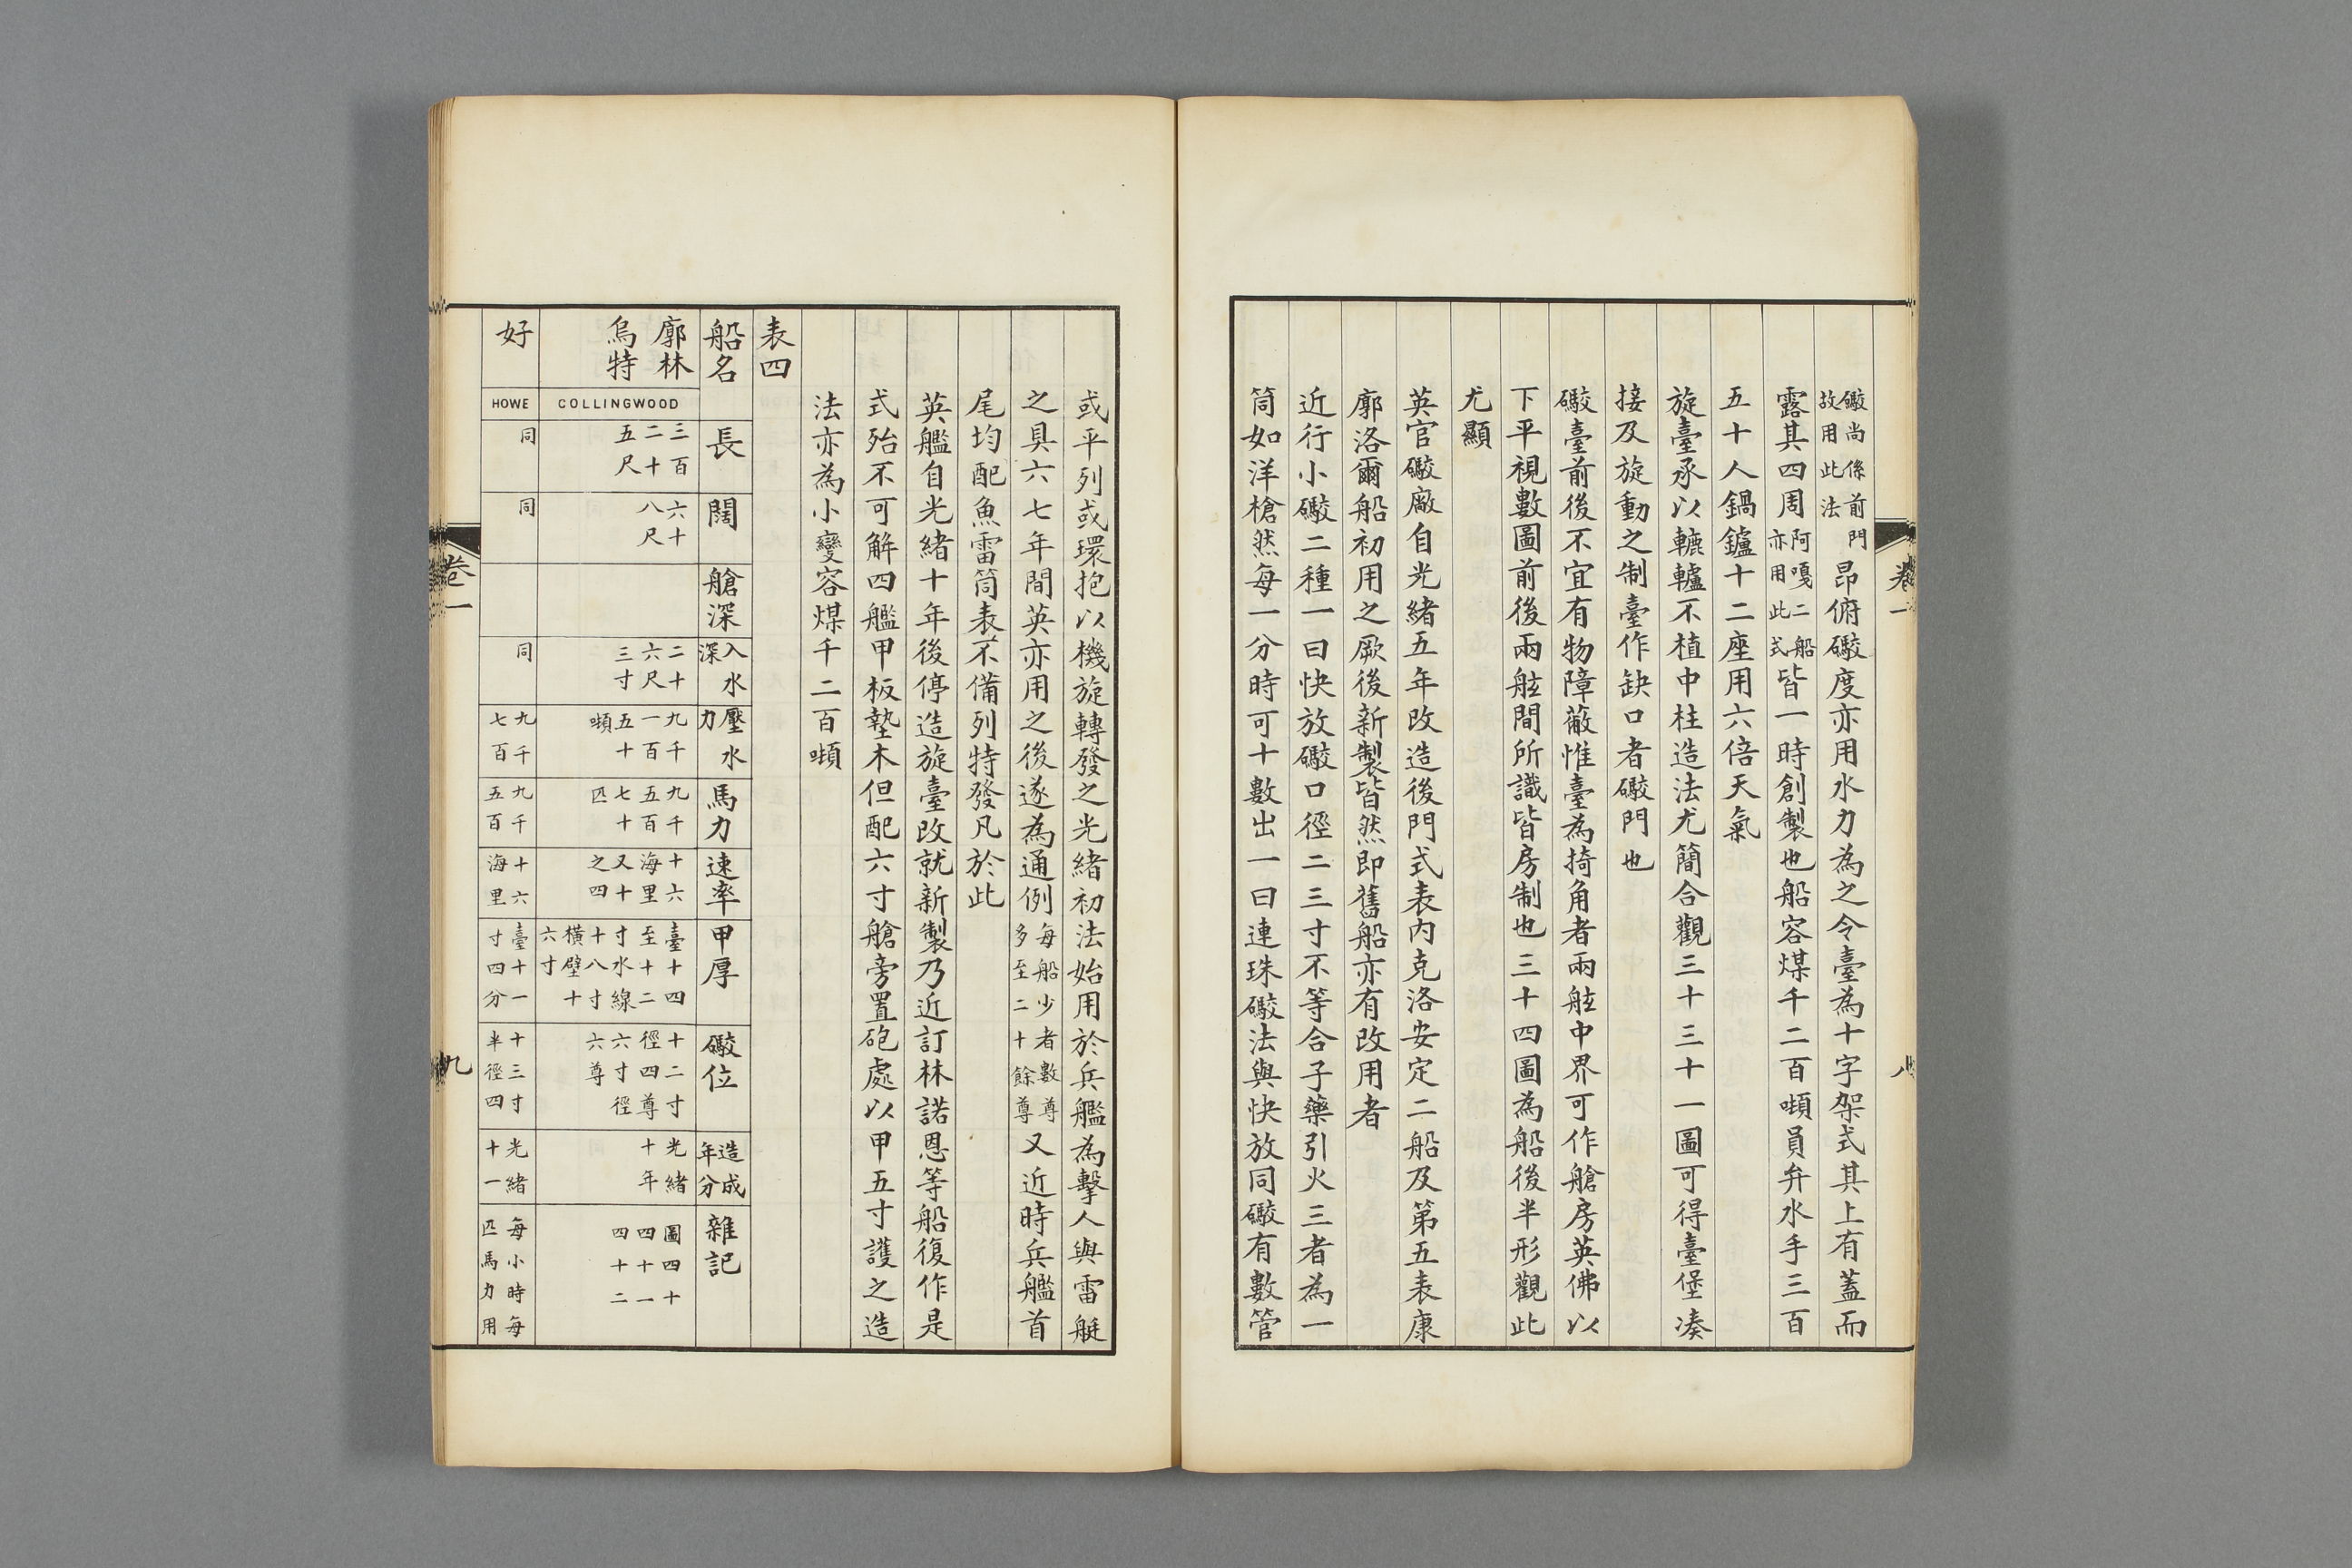 礮尚係前門
故用此法
昂俯礮度亦用水力為之令臺為十字架式其上有蓋而
露其四周
阿嘎二船
亦用此式
皆一時創製也船容煤千二百噸員弁水手三百
五十人鍋鑪十二座用六倍天氣
旋臺承以轆轤不植中柱造法尤簡合觀三十三十一圖可得臺堡湊
接及旋動之制臺作缺口者礮門也
礮臺前後不宜有物障蔽惟臺為掎角者兩舷中界可作艙房英佛以
下平視數圖前後兩舷間所識皆房制也三十四圖為船後半形觀此
尤顯
英官礮廠自光緒五年改造後門式表內克洛安定二船及第五表康
廓洛爾船初用之厥後新製皆然即舊船亦有改用者
近行小礮二種一曰快放礮口徑二三寸不等合子藥引火三者為一
筒如洋槍然每一分時可十數出一曰連珠礮法與快放同礮有數管
卷一
八
或平列或環抱以機旋轉發之光緒初法始用於兵艦為擊人與雷艇
之具六七年間英亦用之後遂為通例
每船少者數尊
多至二十餘尊
又近時兵艦首
尾均配魚雷筒表不備列特發凡於此
英艦自光緒十年後停造旋臺改就新製乃近訂林諾恩等船復作是
式殆不可解四艦甲板墊木但配六寸艙旁置砲處以甲五寸護之造
法亦為小變容煤千二百噸
表四
船名
長
闊
艙深
入水
深
壓水
力
馬力
速率
甲厚
礮位
造成
年分
雜記
廓林
烏特
COLLINGWOOD
三百
二十
五尺
六十
八尺
二十
六尺
三寸
九千
一百
五十
噸
九千
五百
七十
匹
十六
海里
又十
之四
臺十四
至十二
寸水線
十八寸
橫壁十
六寸
十二寸
徑四尊
六寸徑
六尊
光緒
十年
圖四十
四十一
四十二
好
HOWE
同
同
同
九千
七百
九千
五百
十六
海里
臺十一
寸四分
十三寸
半徑四
光緒
十一
每小時每
匹馬力用
卷一
九